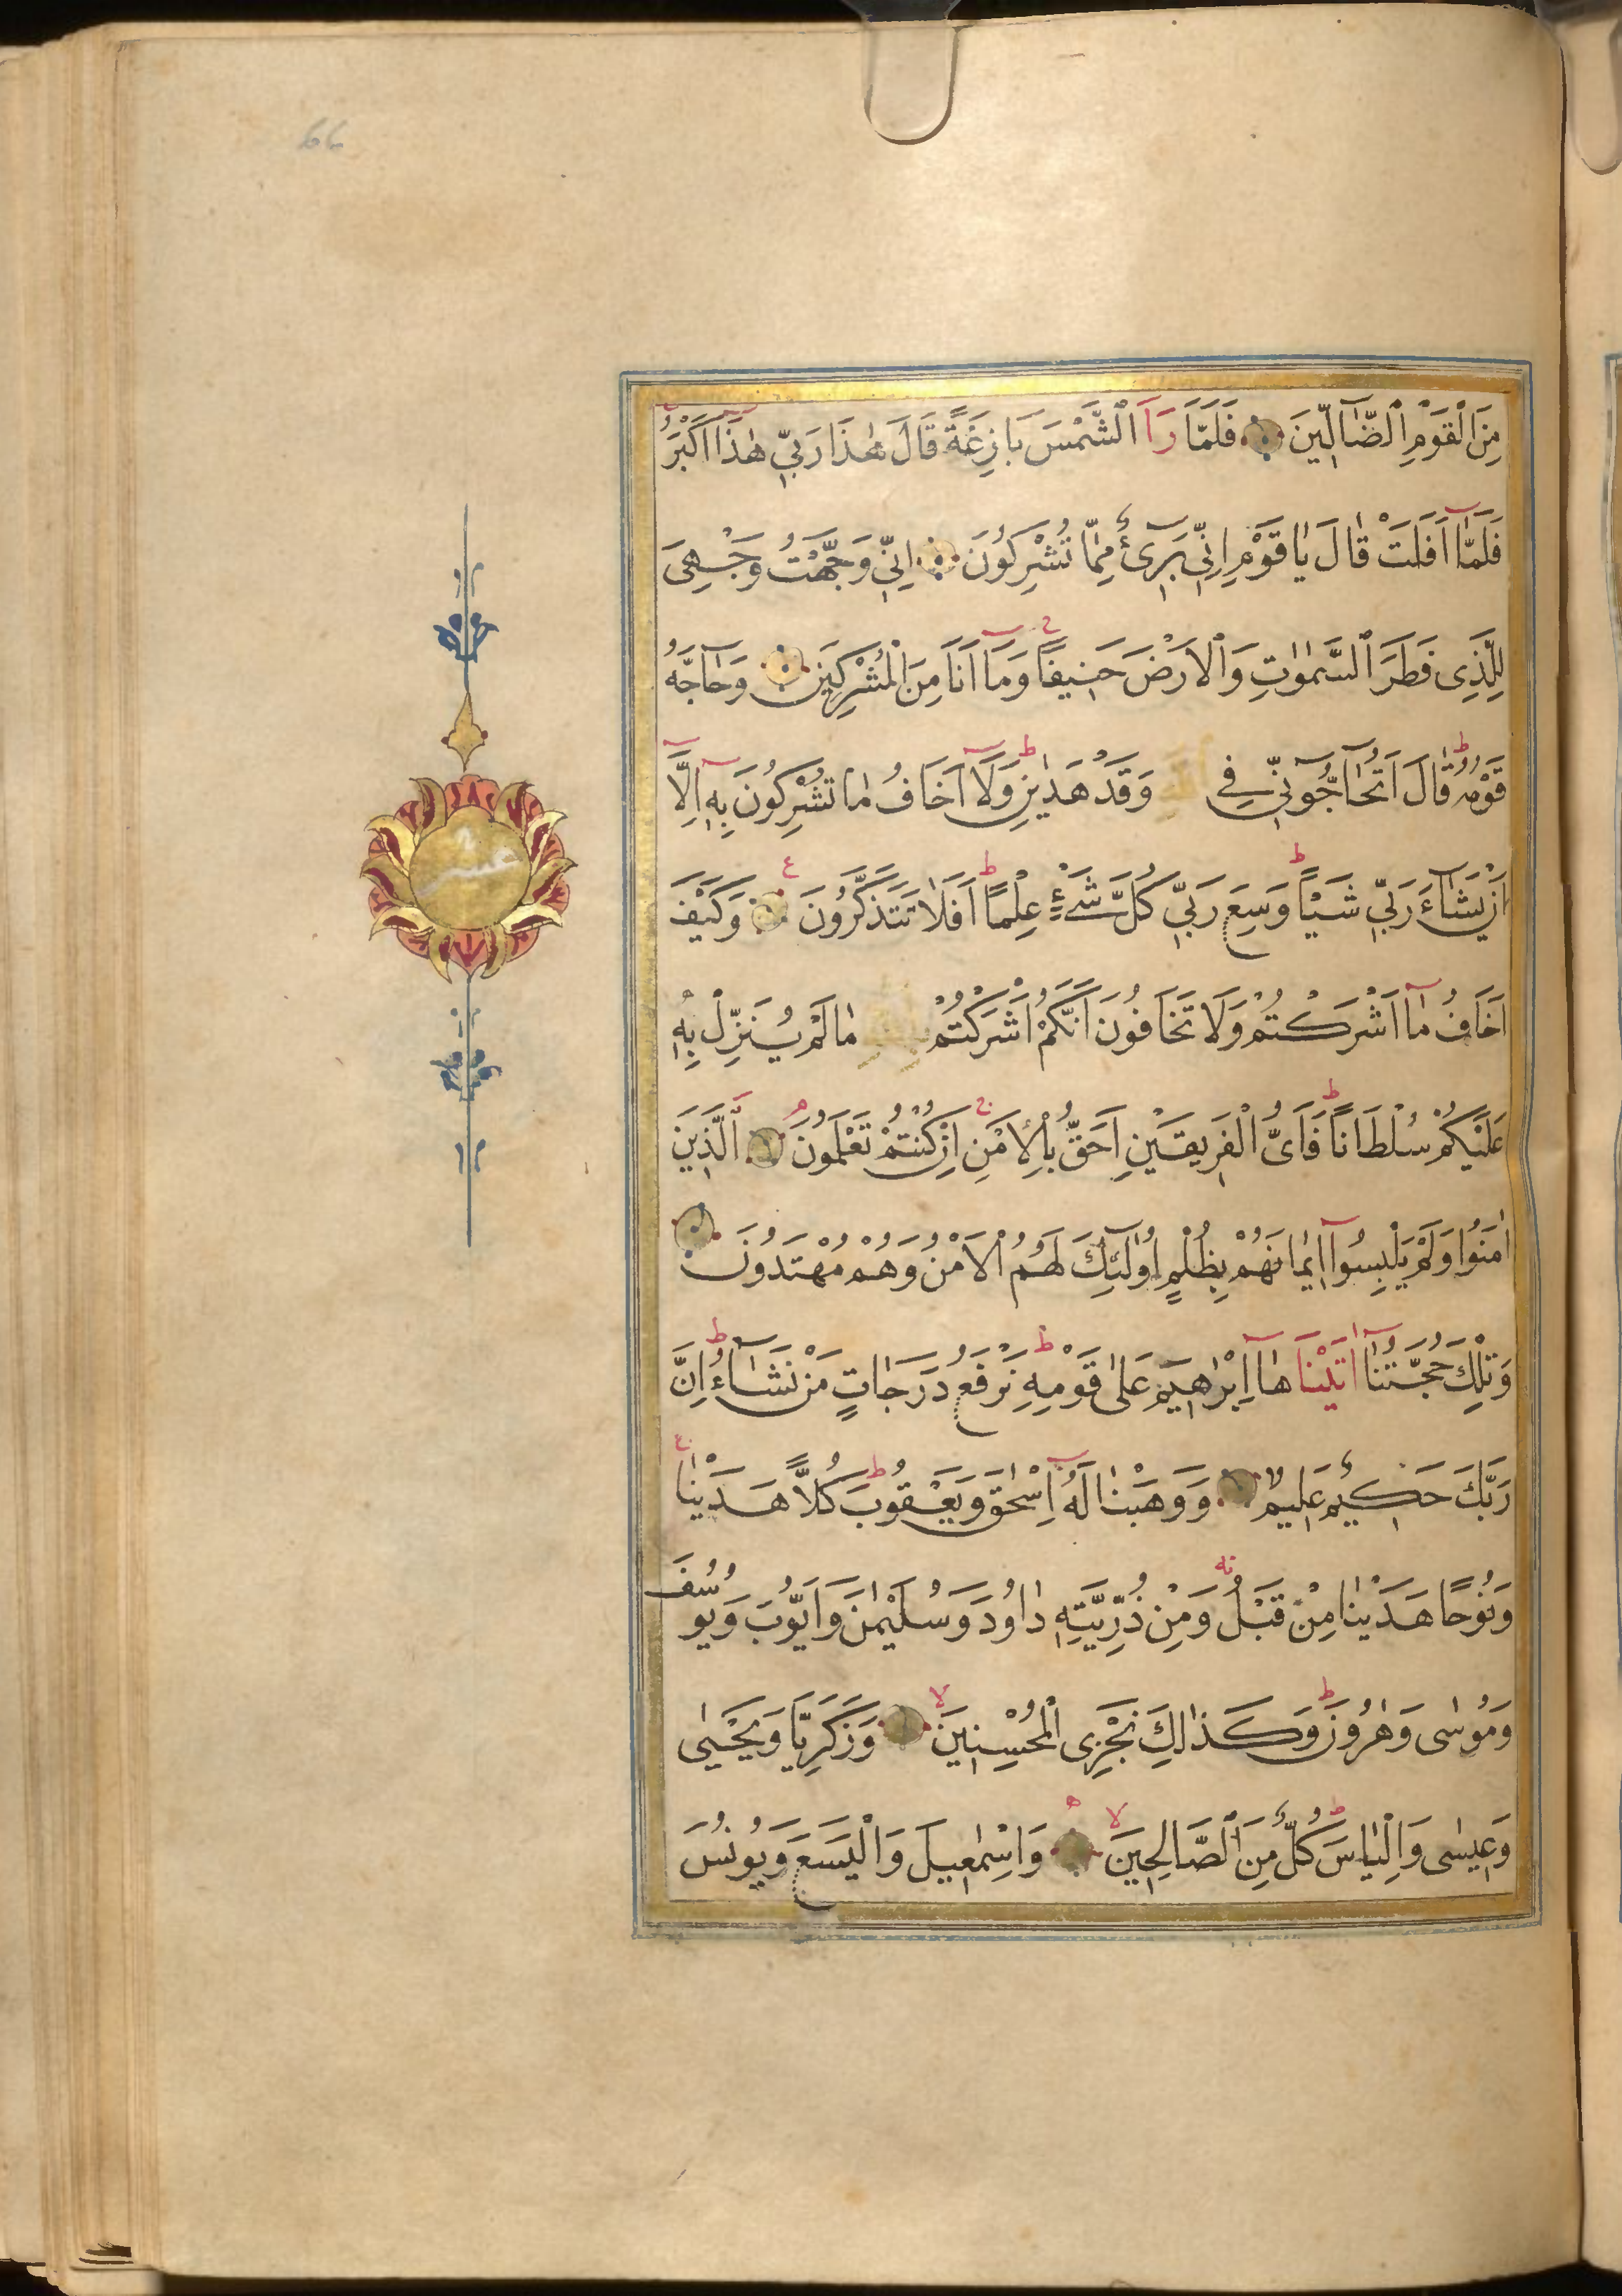 66
مِنَ الْقَوْمِ الضَّآلِّينَ فَلَمَّا رَاَ الشَّمْسَ بَازِغَةً قَالَ هٰذَا رَبِّي هٰذَا اَكْبَرُ
فَلَمَّا اَفَلَتْ قَالَ يَا قَوْمِ اِنِّي بَرِىءٌ مِمَّا تُشْرِكُونَ اِنِّي وَجَّهْتُ وَجْهِىَ
لِلَّذِى فَطَرَ السَّمٰوَاتِ وَالْاَرْضَ حَنِيفًا وَمَا اَنَا مِنَ الْمُشْرِكِينَ وَحَاجَّهُ
قَوْمُهُ قَالَ اَتُحَاجُّونِّي فِي وَقَدْ هَدٰينِ وَلَا اَخَافُ مَا تُشْرِكُونَ بِهِ اِلَّا
اَنْ يَشَاءَ رَبِّي شَيْئًا وَسِعَ رَبِّي كُلَّ شَىْءٍ عِلْمًا اَفَلَا تَتَذَكَّرُونَ وَكَيْفَ
اَخَافُ مَا اَشْرَكْتُمْ وَلَا تَخَافُونَ اَنَّكُمْ اَشْرَكْتُمْ مَا لَمْ يُنَزِّلْ بِهِ
عَلَيْكُمْ سُلْطَانًا فَاَىُّ الْفَرِيقَيْنِ اَحَقُّ بِالْاَمْنِ اِنْ كُنْتُمْ تَعْلَمُونَ اَلَّذِينَ
اٰمَنُوا وَلَمْ يَلْبِسُوا اِيمَانَهُمْ بِظُلْمٍ اُولٰئِكَ لَهُمُ الْاَمْنُ وَهُمْ مُهْتَدُونَ
وَتِلْكَ حُجَّتُنَا اٰتَيْنَاهَا اِبْرٰهِيمَ عَلٰى قَوْمِهِ نَرْفَعُ دَرَجَاتٍ مَنْ نَشَاءُ اِنَّ
رَبَّكَ حَكِيمٌ عَلِيمٌ وَوَهَبْنَا لَهُ اِسْحٰقَ وَيَعْقُوبَ كُلًّا هَدَيْنَا
وَنُوحًا هَدَيْنَا مِنْ قَبْلُ وَمِنْ ذُرِّيَّتِهِ دَاوُدَ وَسُلَيْمٰنَ وَاَيُّوبَ وَيُوسُفَ
وَمُوسٰى وَهٰرُونَ وَكَذٰلِكَ نَجْزِى الْمُحْسِنِينَ وَزَكَرِيَّا وَيَحْيٰى
وَعِيسٰى وَاِلْيَاسَ كُلٌّ مِنَ الصَّالِحِينَ وَاِسْمٰعِيلَ وَالْيَسَعَ وَيُونُسَ